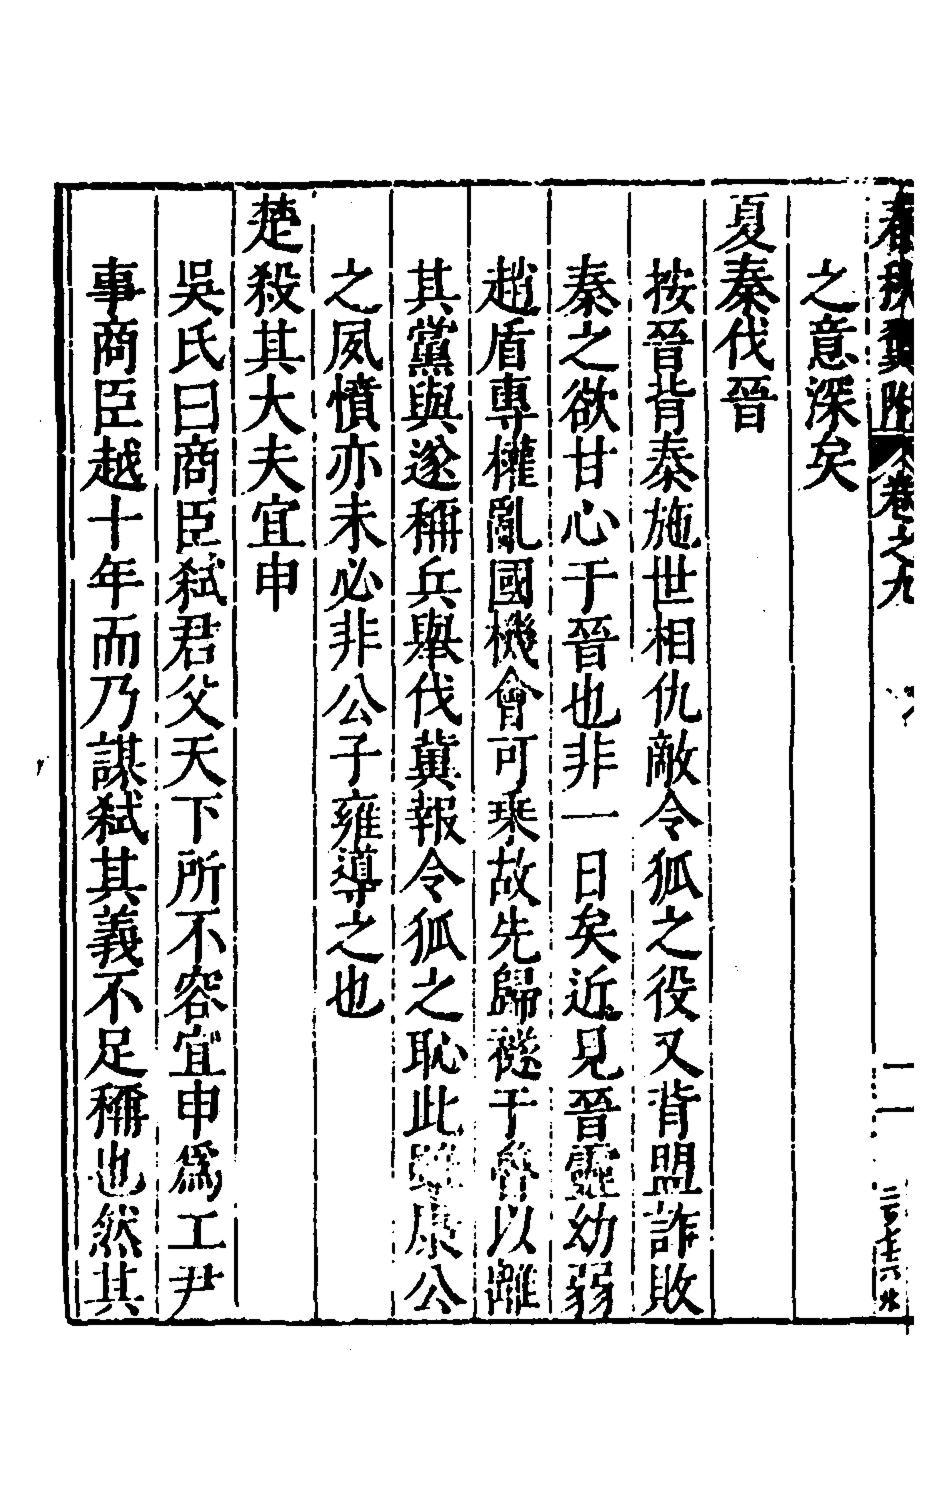 春秋翼附 卷之九
之意深矣
夏秦伐晉
按晉背秦施世相仇敵令狐之役又背盟詐敗
秦之欲甘心于晉也非一日矣近見晉靈幼弱
趙盾專權亂國機會可乘故先歸襚于魯以離
其黨與遂稱兵舉伐冀報令狐之恥此雖康公
之夙憤亦未必非公子雍導之也
楚殺其大夫宜申
吳氏曰商臣弒君父天下所不容宜申爲工尹
事商臣越十年而乃謀弒其義不足稱也然其